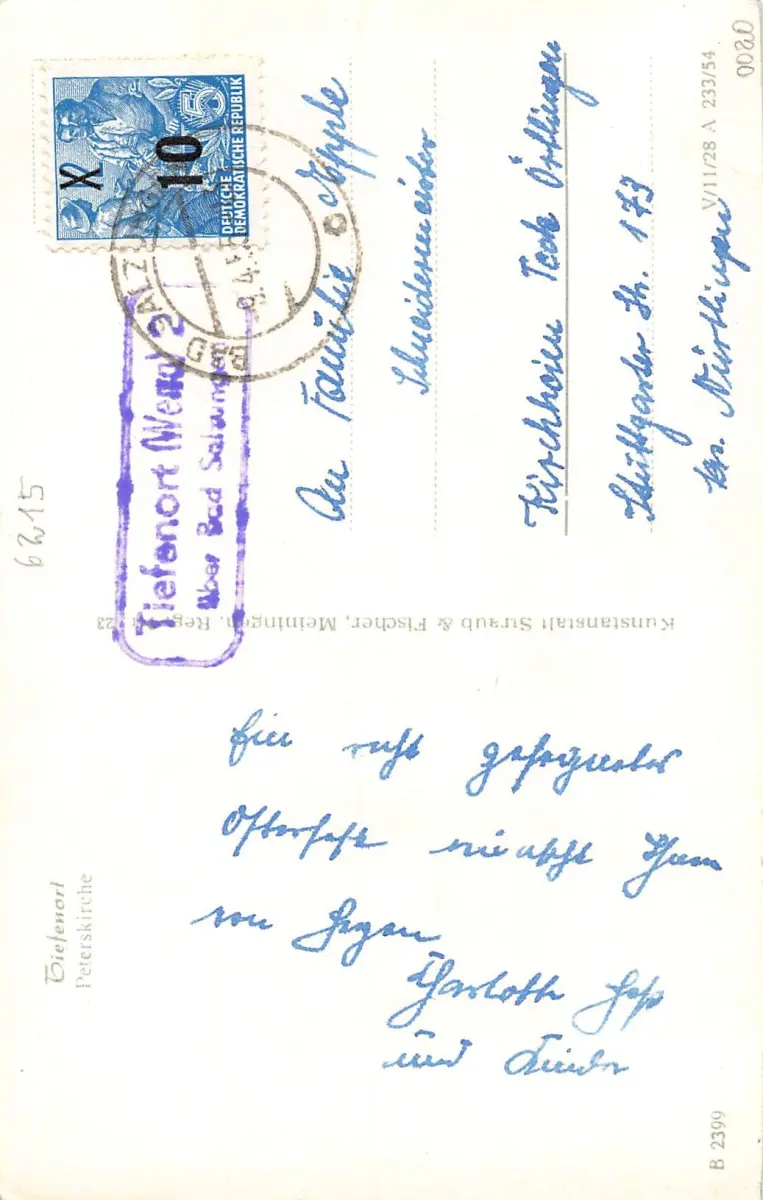 Tiefenort
Peterskirche
Ein recht gesegnetes
Osterfest wünscht Ihnen
von Herzen
Charlotte Heß
und Kinder
B 2399
Kunstanstalt Straub & Fischer, Meiningen, Reg. 23
6215
DEUTSCHE
DEMOKRATISCHE REPUBLIK
5
X
10
BAD SALZUNGEN
9.4.5
Tiefenort (Werra) 2
über Bad Salzungen
An Familie Epple
Schneidermeister
Kirchheim Teck Ötlingen
Stuttgarter Str. 173
Krs. Nürtlingen
V/11/28 A 233/54
0020